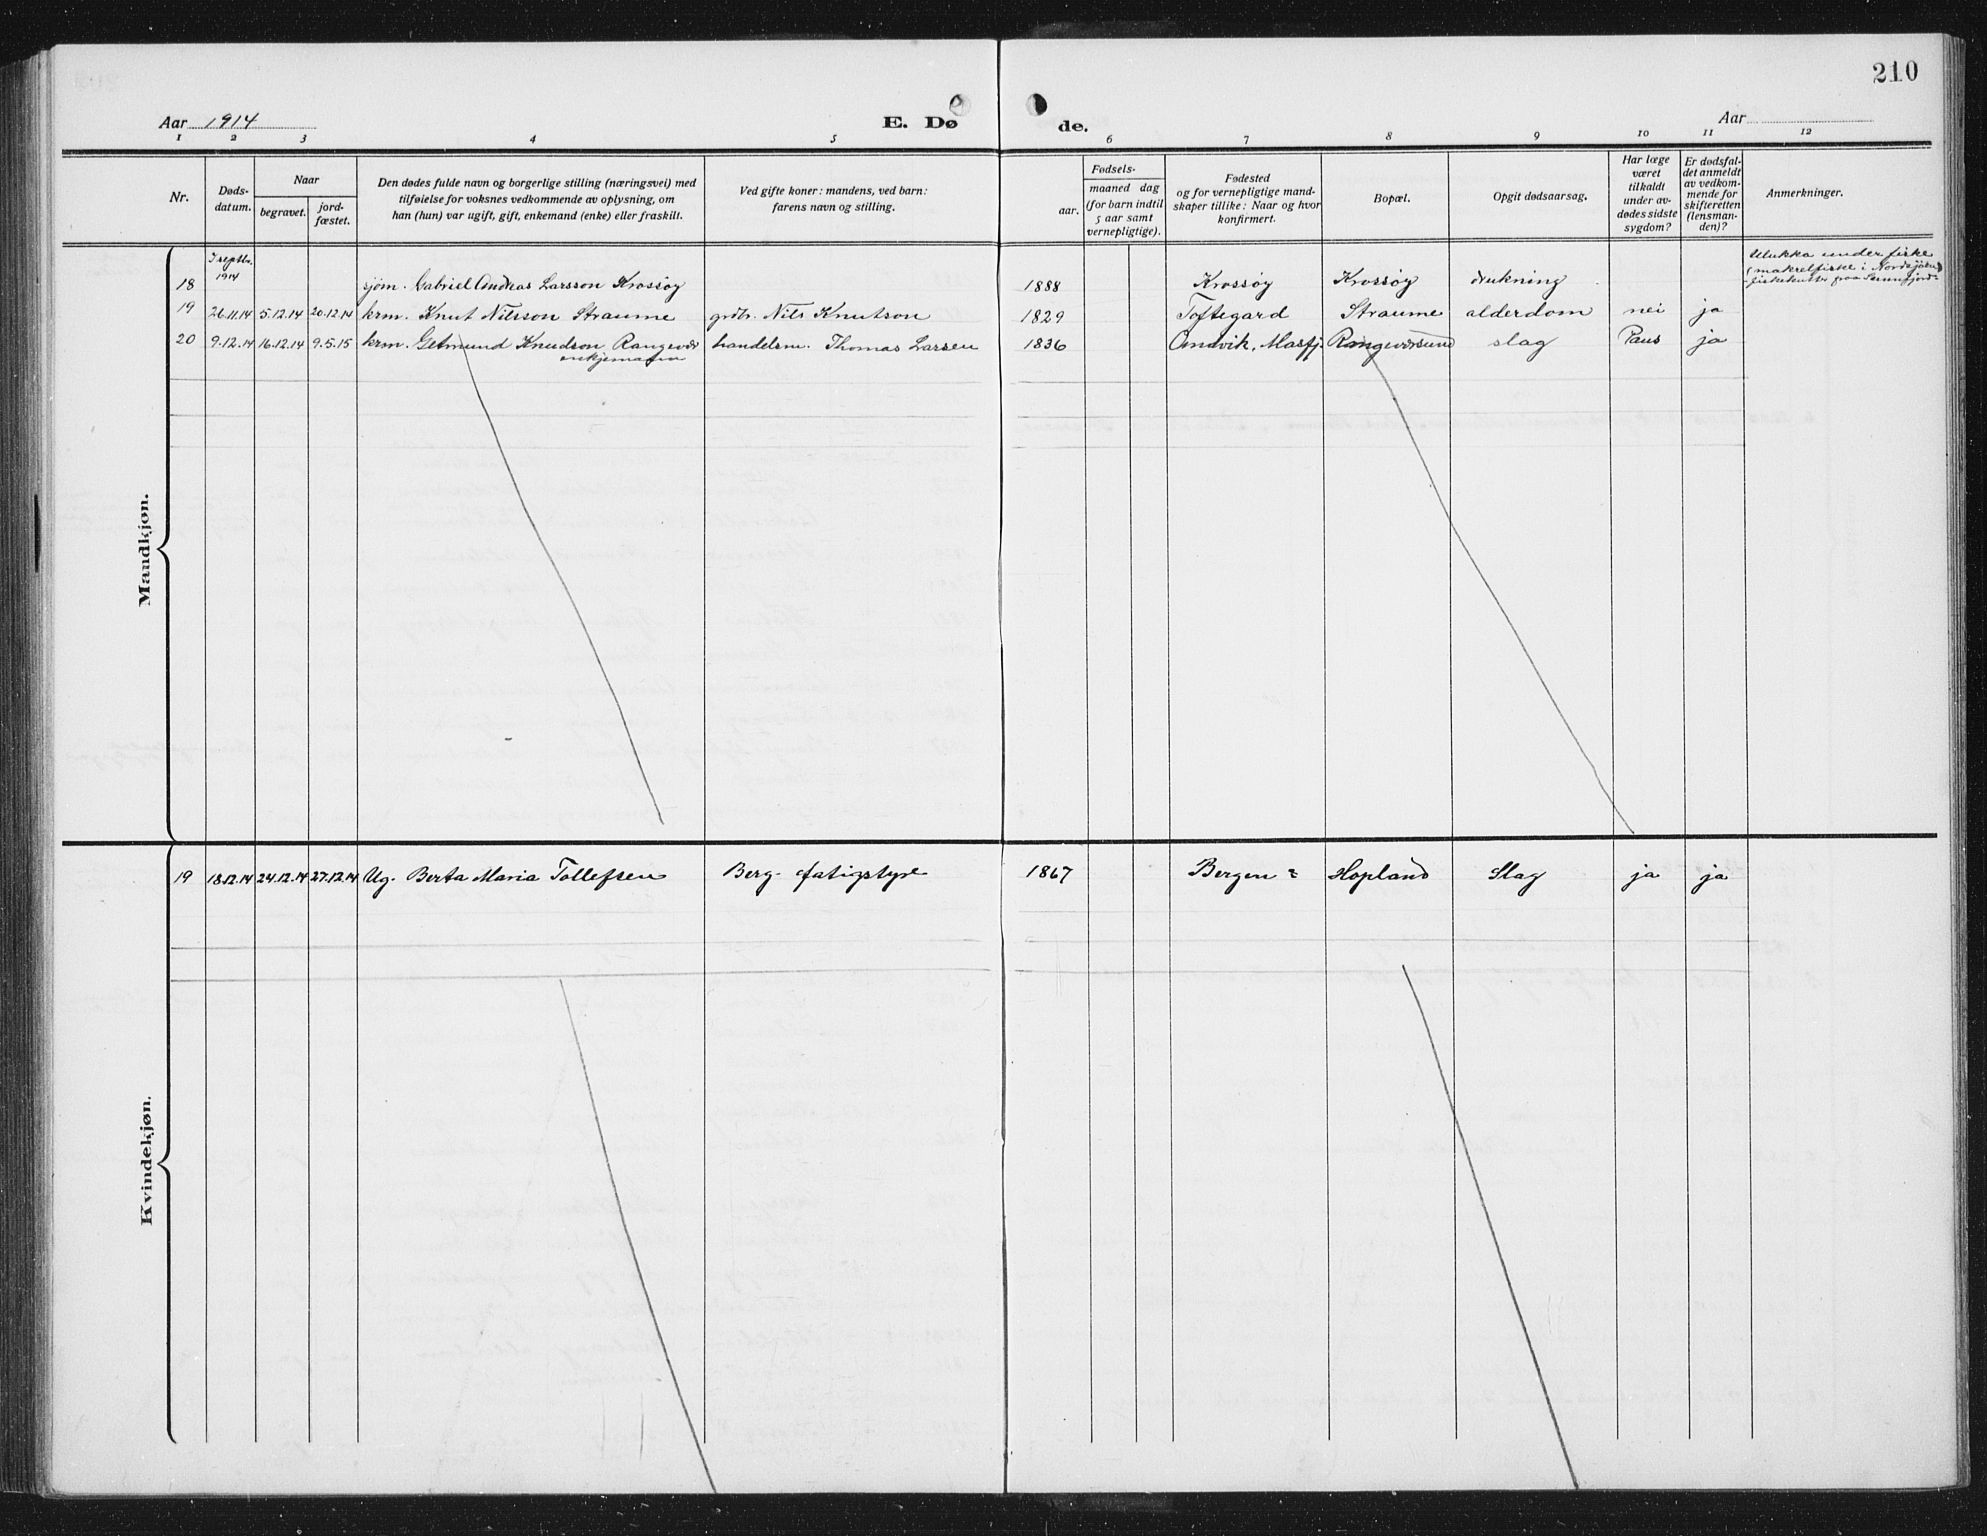 210
Aar 1914
E. Dø
de.
Aar
1 2 3 4 5 6 7 8 9 10 11 12
Nr.
Døds-
datum.
Naar
begravet.
jord-
fæstet.
Den dødes fulde navn og borgerlige stilling (næringsvei) med
tilføielse for voksnes vedkommende av oplysning, om
han (hun) var ugift, gift, enkemand (enke) eller fraskilt.
Ved gifte koner: mandens, ved barn:
farens navn og stilling.
Fødsels-
aar.
maaned dag
(for barn indtil
5 aar samt
vernepligtige).
Fødested
og for vernepligtige mand-
skaper tillike: Naar og hvor
konfirmert.
Bopæl.
Opgit dødsaarsag.
Har læge
været
tilkaldt
under av-
dødes sidste
sygdom?
Er dødsfal-
det anmeldt
av vedkom-
mende for
skifteretten
(lensman-
den)?
Anmerkninger.
Mandkjøn.
18 septbr. 1914 sjøm. Gabriel Andreas Larsson Krossøy 1888 Krossøy Krossøy drukning Ulukka under fiske
(makrelfiske i Nordsjøen)
fiskekutter fraa
19 26.11.14 5.12.14 20.12.14 krm. Knut Nilsson Straume grdbr. Nils Knutson 1829 Toftegard Straume alderdom nei ja
20 9.12.14 16.12.14 9.5.15 krm. Getmund Knudson Rangevær handelsm. Thomas Larsen 1836 Andvik, Masfj. Rangeværsund slag Paus ja
enkjemann
Kvindekjøn.
19 18.12.14 24.12.14 27.12.14 Ug. Berta Maria Tollefsen Berg. fatigstyre 1867 Bergen ? Hopland Slag ja ja